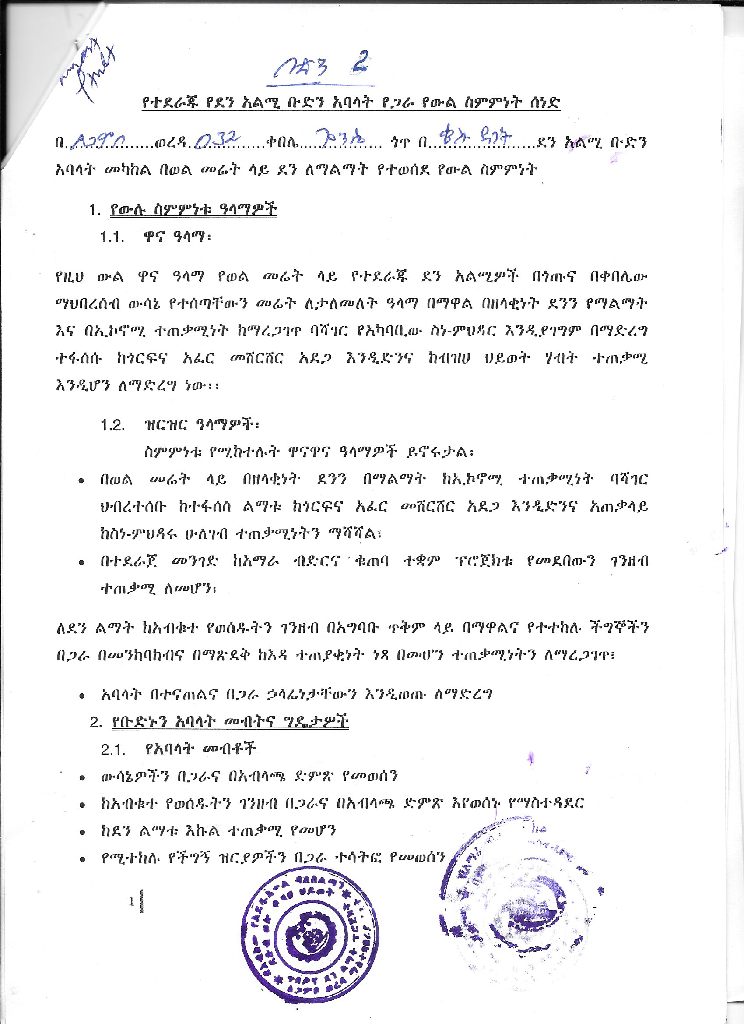 ቡድን 2
የተደራጁ የደን አልሚ ቡድን አባላት የጋራ የውል ስምምነት ሰነድ
በ.ለጋምቦ......ወረዳ.032......ቀበሌ............ ጎጥ በ....................ደን አልሚ ቡድን
አባላት መካከል በወል መሬት ላይ ደን ለማልማት የተወሰደ የውል ስምምነት
1. የውሉ ስምምነቱ ዓላማዎች
1.1. ዋና ዓላማ፡
የዚህ ውል ዋና ዓላማ የወል መሬት ላይ የተደራጁ ደን አልሚዎች በጎጡና በቀበሌው
ማህበረሰብ ውሳኔ የተሰጣቸውን መሬት ለታለመለት ዓላማ በማዋል በዘላቂነት ደንን የማልማት
እና በኢኮኖሚ ተጠቃሚነት ከማረጋገጥ ባሻገር የአካባቢው ስነ-ምህዳር እንዲያገግም በማድረግ
ተፋሰሱ ከጎርፍና አፈር መሸርሸር አደጋ እንዲድንና ከብዝሀ ህይወት ሃብት ተጠቃሚ
እንዲሆን ለማድረግ ነው፡፡
1.2. ዝርዝር ዓላማዎች፡
ስምምነቱ የሚከተሉት ዋናዋና ዓላማዎች ይኖሩታል፡
• በወል መሬት ላይ በዘላቂነት ደንን በማልማት ከኢኮኖሚ ተጠቃሚነት ባሻገር
ህብረተሰቡ ከተፋሰስ ልማቱ ከጎርፍና አፈር መሸርሸር አደጋ እንዲድንና አጠቃላይ
ከስነ-ምህዳሩ ሁለገብ ተጠቃሚነትን ማሻሻል፤
• በተደራጀ መንገድ ከአማራ ብድርና ቁጠባ ተቋም ፕሮጀክቱ የመደበውን ገንዘብ
ተጠቃሚ ለመሆን፤
ለደን ልማት ከአብቁተ የወሰዱትን ገንዘብ በአግባቡ ጥቅም ላይ በማዋልና የተተከሉ ችግኞችን
በጋራ በመንከባከብና በማጽደቅ ከእዳ ተጠያቂነት ነጻ በመሆን ተጠቃሚነትን ለማረጋገጥ፤
• አባላት በተናጠልና በጋራ ኃላፊነታቸውን እንዲወጡ ለማድረግ
2. የቡድኑን አባላት መብትና ግዴታዎች
2.1. የአባላት መብቶች
• ውሳኔዎችን በጋራና በአብላጫ ድምጽ የመወሰን
• ከአብቁተ የወሰዱትን ገንዘብ በጋራና በአብላጫ ድምጽ እየወሰኑ የማስተዳደር
• ከደን ልማቱ እኩል ተጠቃሚ የመሆን
• የሚተከሉ የችግኝ ዝርያዎችን በጋራ ተሳትፎ የመወሰን
1